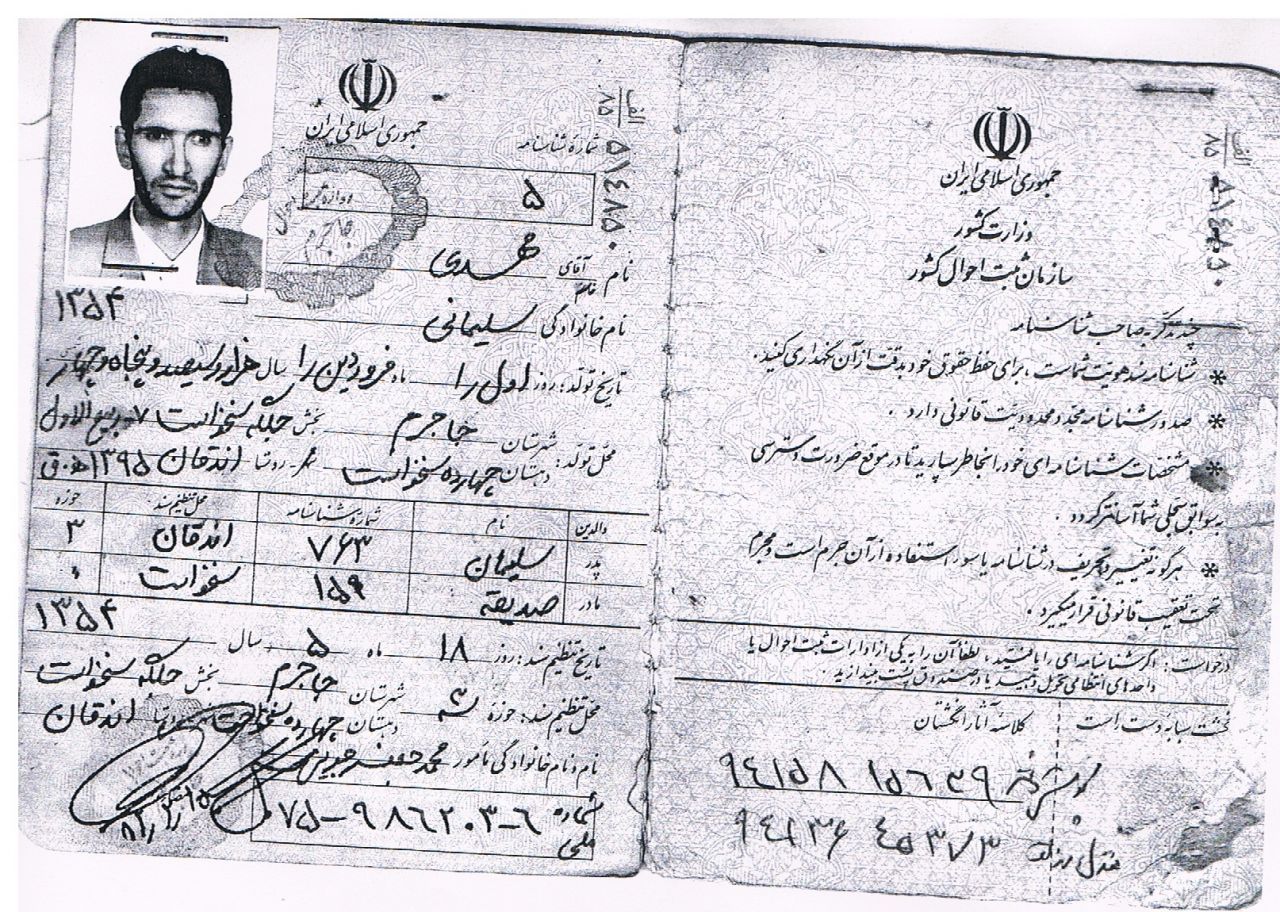 جمهوری اسلامی ایران
وزارت کشور
سازمان ثبت احوال کشور
الف
۸۵
چند تذکر به صاحب شناسنامه
* شناسنامه سند هویت شماست ، برای حفظ حقوق خود بدقت از آن نگهداری کنید .
* صدور شناسنامه مجدد محدودیت قانونی دارد .
* مشخصات شناسنامه ای خود را بخاطر بسپارید تا در موقع ضرورت دسترسی
به سوابق سجلی شما آسانتر گردد .
* هرگونه تغییر و تحریف در شناسنامه یا سوء استفاده از آن جرم است و مجرم
تحت تعقیب قانونی قرار میگیرد .
درخواست : اگر شناسنامه ای را یافتید ، لطفاً آن را به یکی از ادارات ثبت احوال یا
واحدهای انتظامی تحویل دهید یا در صندوق پست بیندازید .
انگشت سبابه دست راست
کلاسه آثار انگشتان
جمهوری اسلامی ایران
الف
۸۵
۵۱۴۸۵۰
شماره شناسنامه
۵
نام آقای مهدی
خانم
نام خانوادگی سلیمانی
۱۳۵۴
تاریخ تولد : روز اول را ماه فروردین را سال هزار و سیصد و پنجاه و چهار
محل تولد : شهرستان جاجرم بخش جلگه سنخواست ۷ ربیع الاول
دهستان چهارده سنخواست شهر - روستا اندقان ۱۳۹۵ ه . ق
والدین نام شماره شناسنامه محل تنظیم سند حوزه
پدر سلیمان ۷۶۳ اندقان ۳
مادر صدیقه ۱۵۹ سنخواست
تاریخ تنظیم سند : روز ۱۸ ماه ۵ سال ۱۳۵۴
محل تنظیم سند : حوزه ۳ شهرستان جاجرم بخش جلگه سنخواست
دهستان چهارده سنخواست اندقان
نام و نام خانوادگی مأمور محمد جعفر
شماره ملی ۰۷۵-۹۸۶۲۰۳-۶